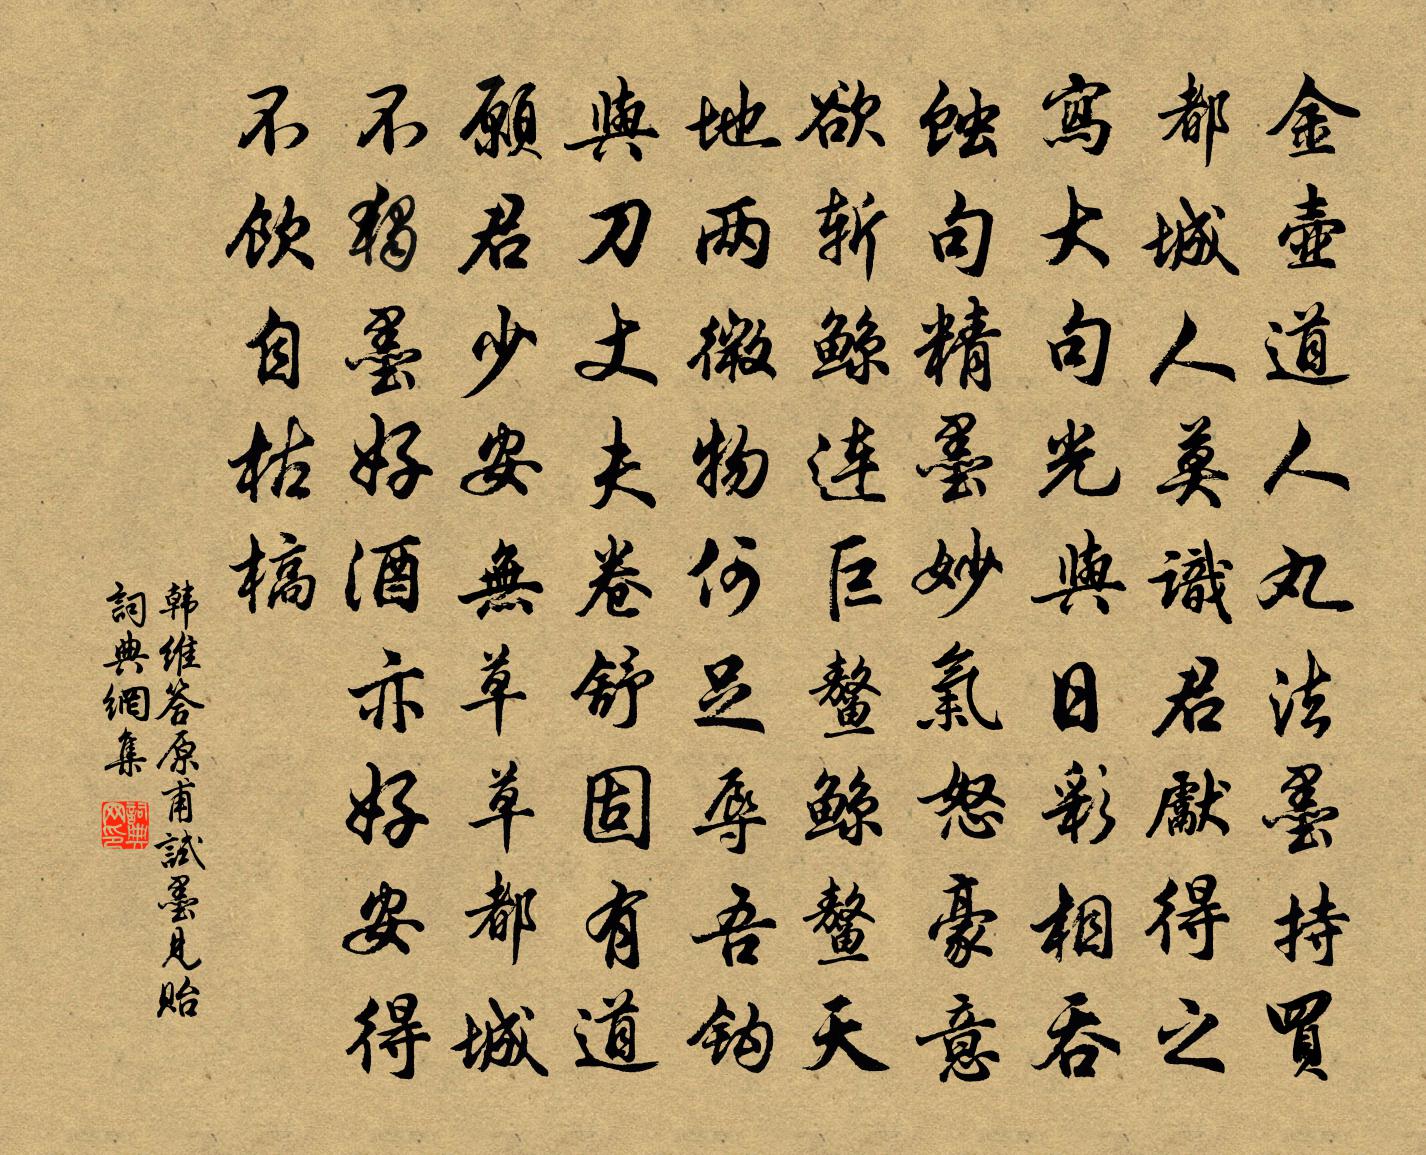 金壺道人丸法墨持買
都城人莫識君獻得之
寫大句光與日彩相吞
蝕句精墨妙氣怒豪意
欲斩鲸连巨鳌鲸鳌天
地两微物何足辱吾钩
與刀丈夫卷舒固有道
願君少安無草草都城
不独墨好酒亦好安得
不飲自枯槁
韩维答原甫試墨見貽
詞典網集